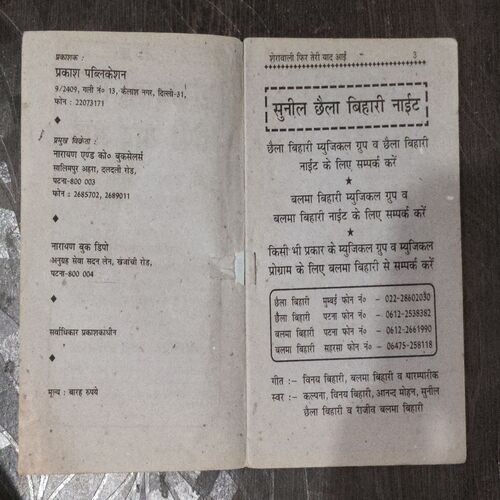 प्रकाशक :
प्रकाश पब्लिकेशन
9/2409, गली नं० 13, कैलाश नगर, दिल्ली-31,
फोन : 22073171
प्रमुख विक्रेता :
नारायण एण्ड को० बुकसेलर्स
सालिमपुर अहरा, दलदली रोड,
पटना-800 003
फोन : 2685702, 2689011
नारायण बुक डिपो
अनुग्रह सेवा सदन लेन, खजांची रोड,
पटना-800 004
सर्वाधिकार प्रकाशकाधीन
मूल्य : बारह रुपये
शेरावाली फिर तेरी याद आई 3
सुनील छैला बिहारी नाईट
छैला बिहारी म्युजिकल ग्रुप व छैला बिहारी
नाईट के लिए सम्पर्क करें
बलमा बिहारी म्युजिकल ग्रुप व
बलमा बिहारी नाईट के लिए सम्पर्क करें
किसी भी प्रकार के म्युजिकल ग्रुप व म्युजिकल
प्रोग्राम के लिए बलमा बिहारी से सम्पर्क करें
छैला बिहारी मुम्बई फोन नं० - 022-28602030
छैला बिहारी पटना फोन नं० - 0612-2538382
बलमा बिहारी पटना फोन नं० - 0612-2661990
बलमा बिहारी सहरसा फोन नं० - 06475-258118
गीत :- विनय बिहारी, बलमा बिहारी व पारम्पारीक
स्वर :- कल्पना, विनय बिहारी, आनन्द मोहन, सुनील
छैला बिहारी व राजीव बलमा बिहारी